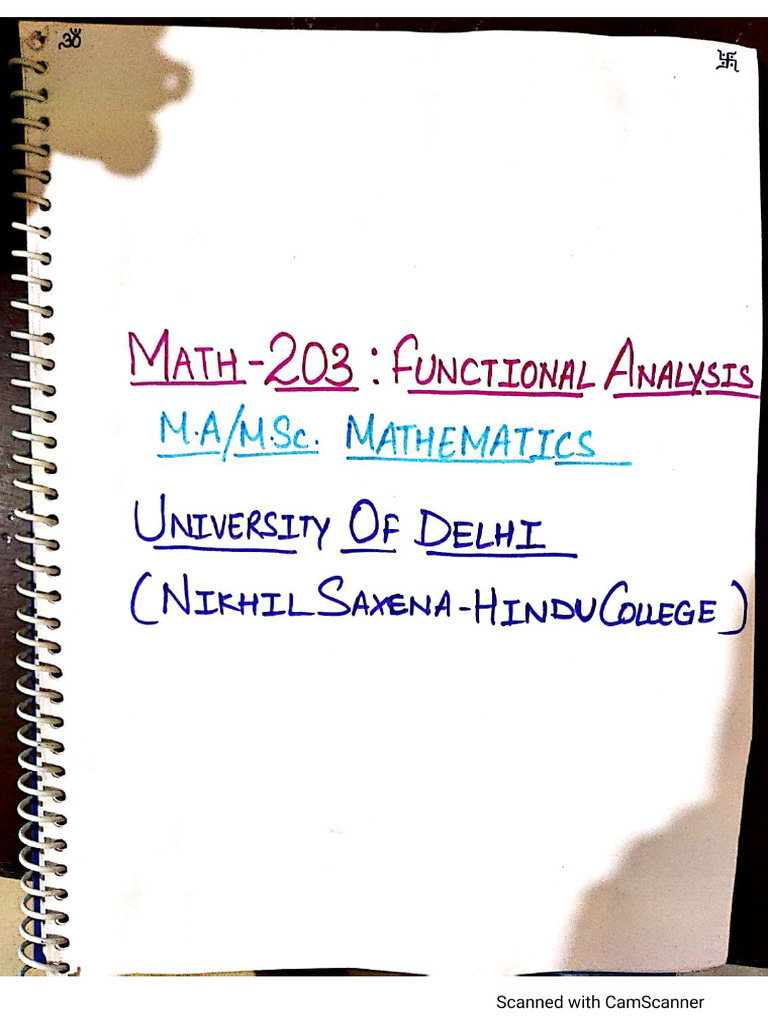 ॐ 卐
MATH-203: FUNCTIONAL ANALYSIS
M.A/M.Sc. MATHEMATICS
UNIVERSITY OF DELHI
(NIKHIL SAXENA-HINDU COLLEGE)
Scanned with CamScanner